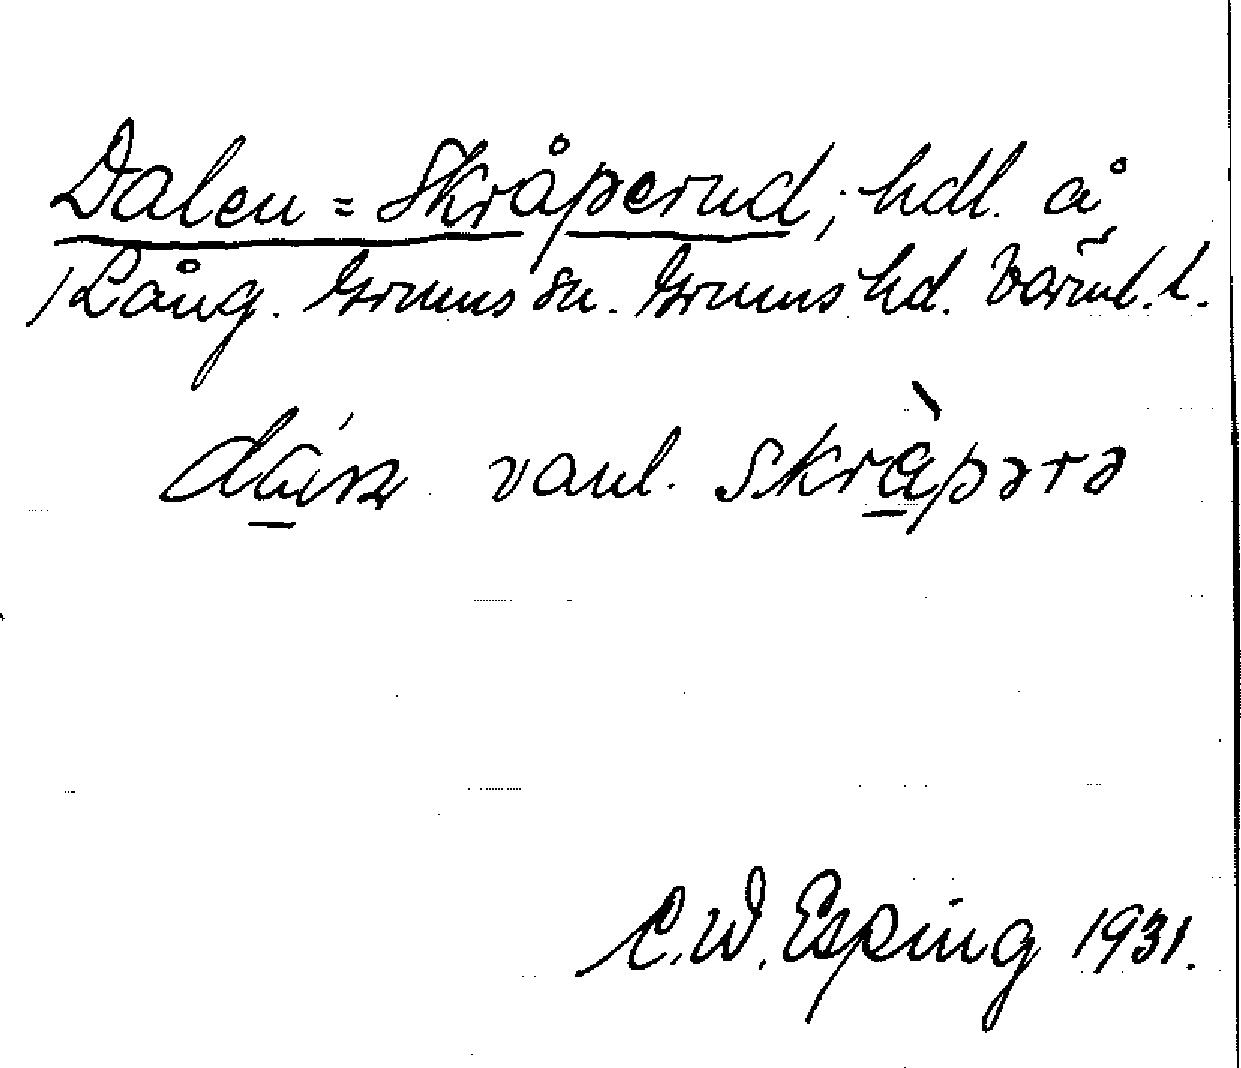 Dalen = Skråperud; hdl. å
/Lång. Grums sn. Grums hd. Värml. l.
vanl. skràpərə
C. W. Esping 1931.